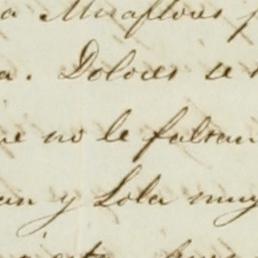 a Miraflores p
a. Dolores se
e no le faltan
an y Lola muy